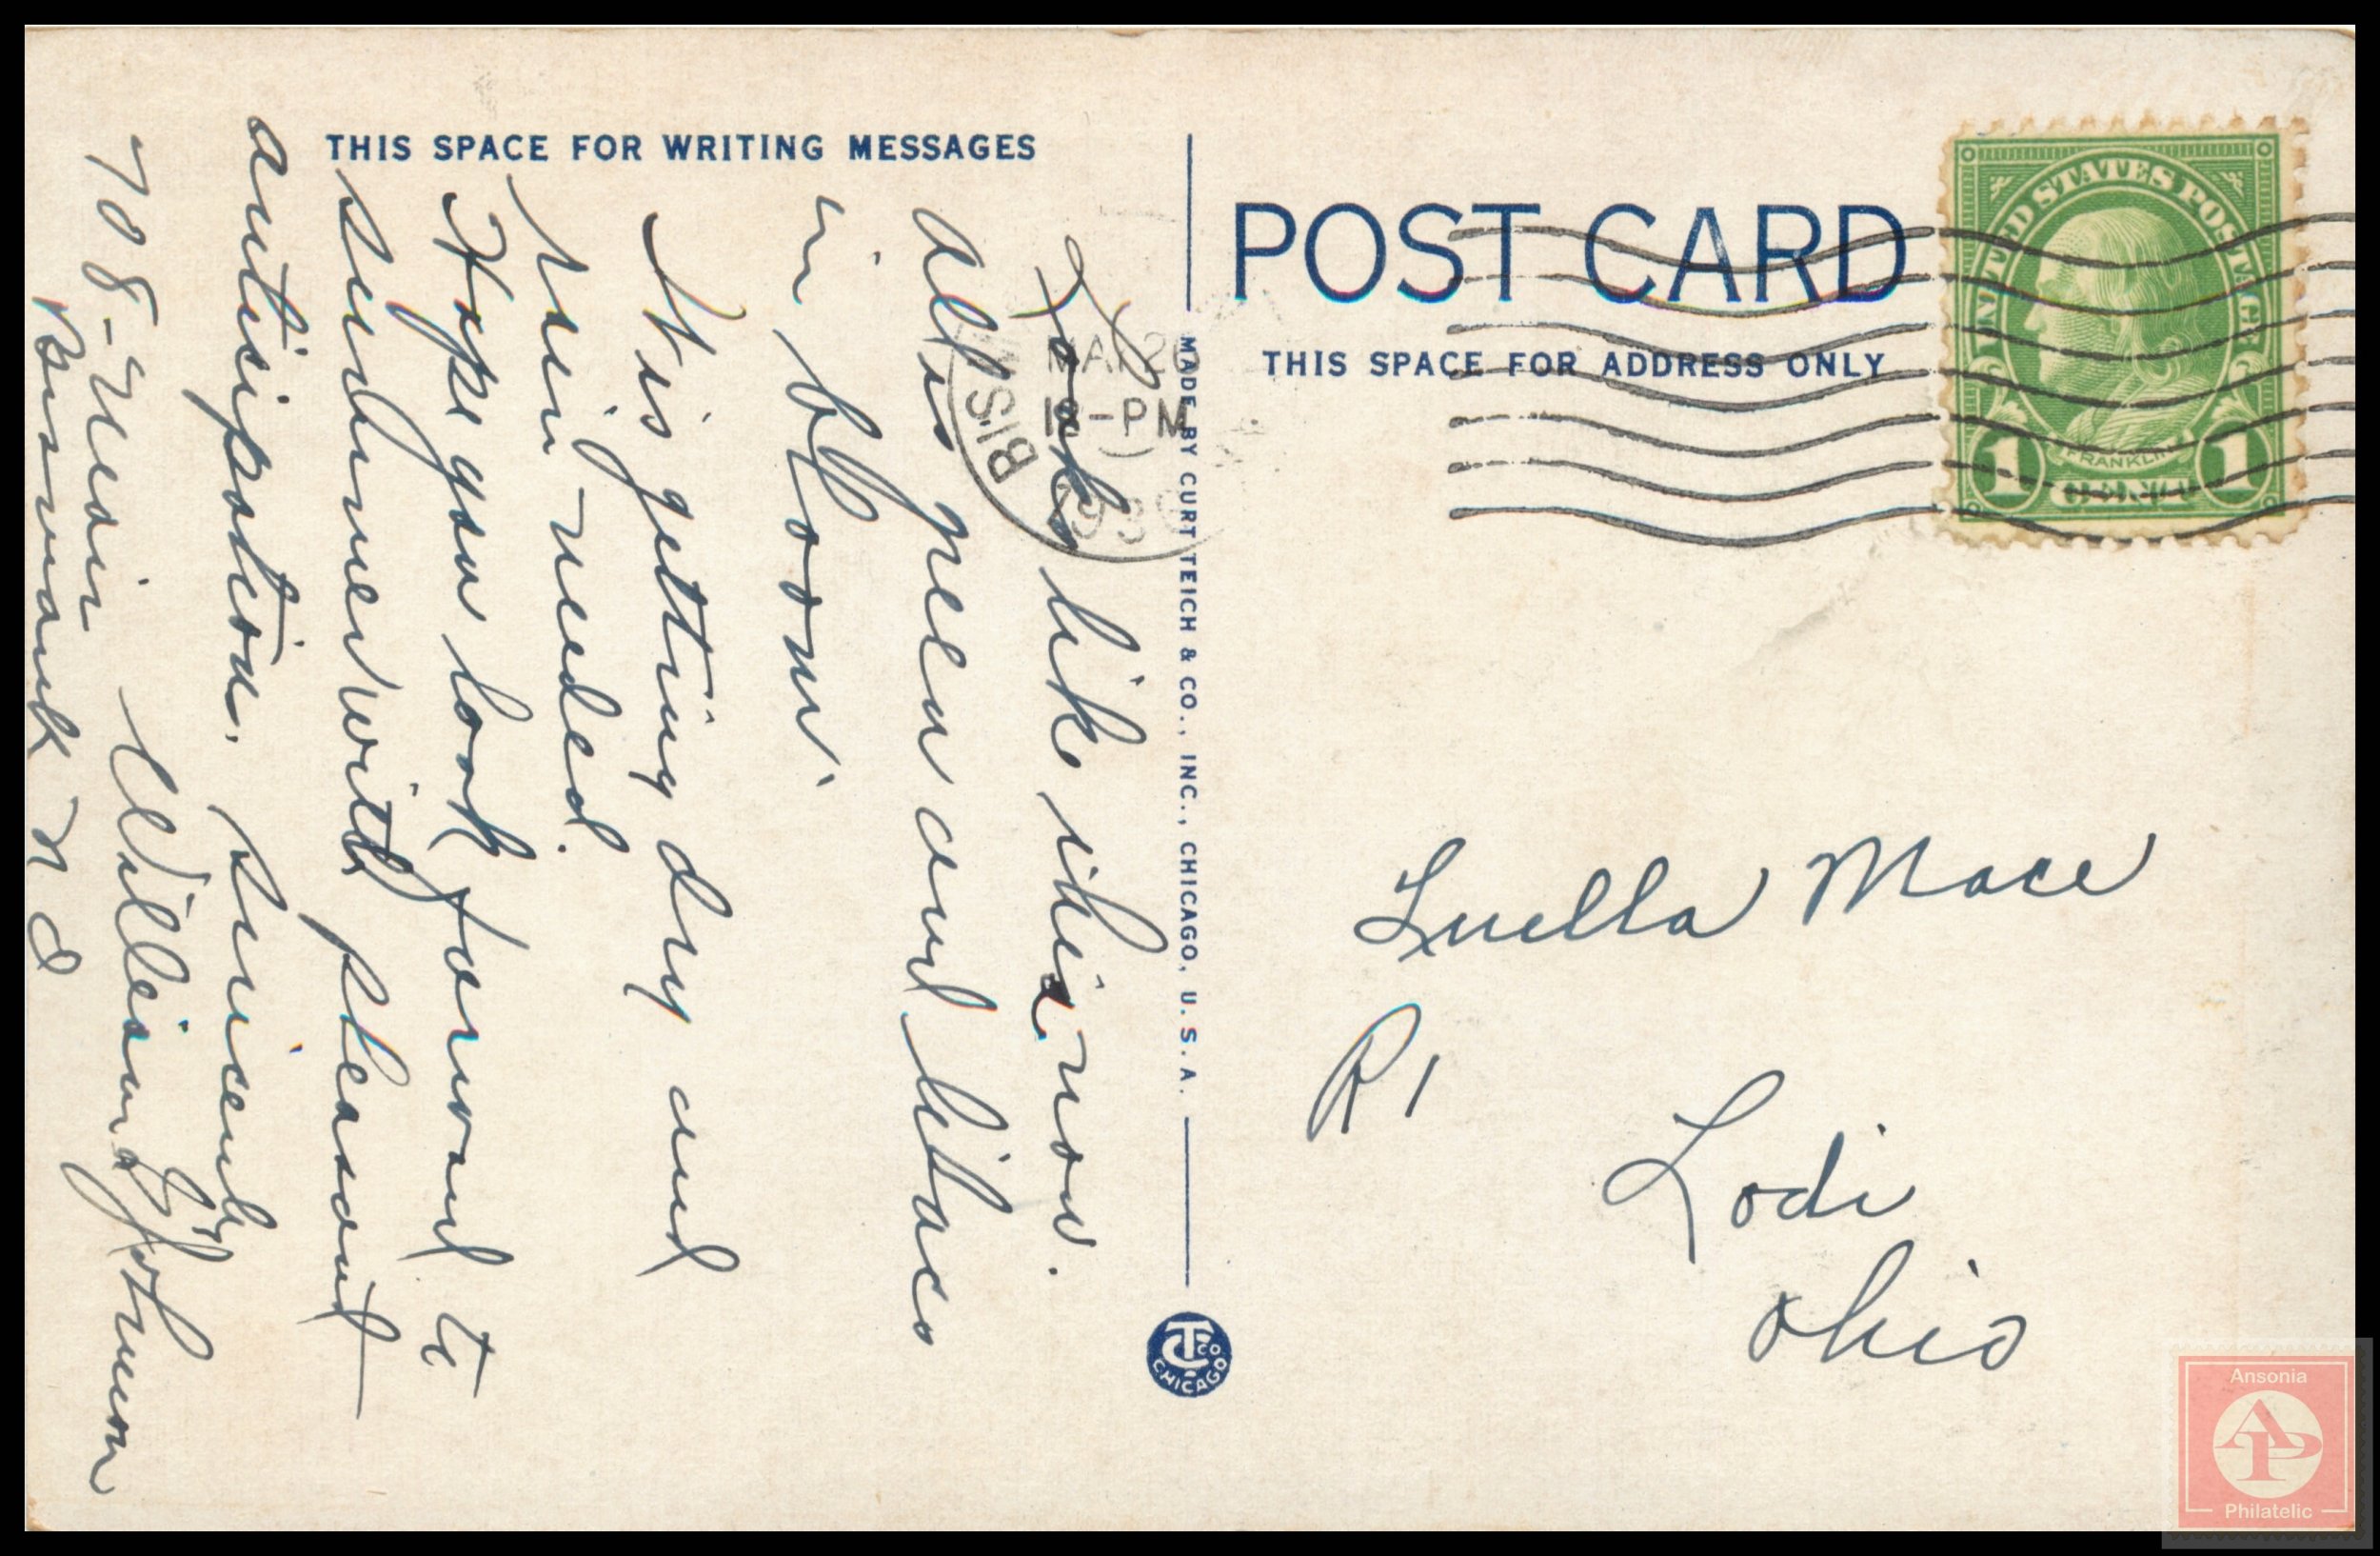 THIS SPACE FOR WRITING MESSAGES
Looks like this now.
all is green and lilacs
in bloom
It is getting dry and
rain needed.
Hope you look forward to
summer with pleasant
anticipation. Sincerely
708-Main William J Johnson
Bismarck N D
BIS
MA 20
12-PM
193
MADE BY CURT TEICH & CO., INC., CHICAGO, U.S.A.
TC CO
CHICAGO
POST CARD
THIS SPACE FOR ADDRESS ONLY
UNITED STATES POSTAGE
FRANKLIN
1 CENT 1
Luella Mace
R 1
Lodi
Ohio
Ansonia
AP
Philatelic